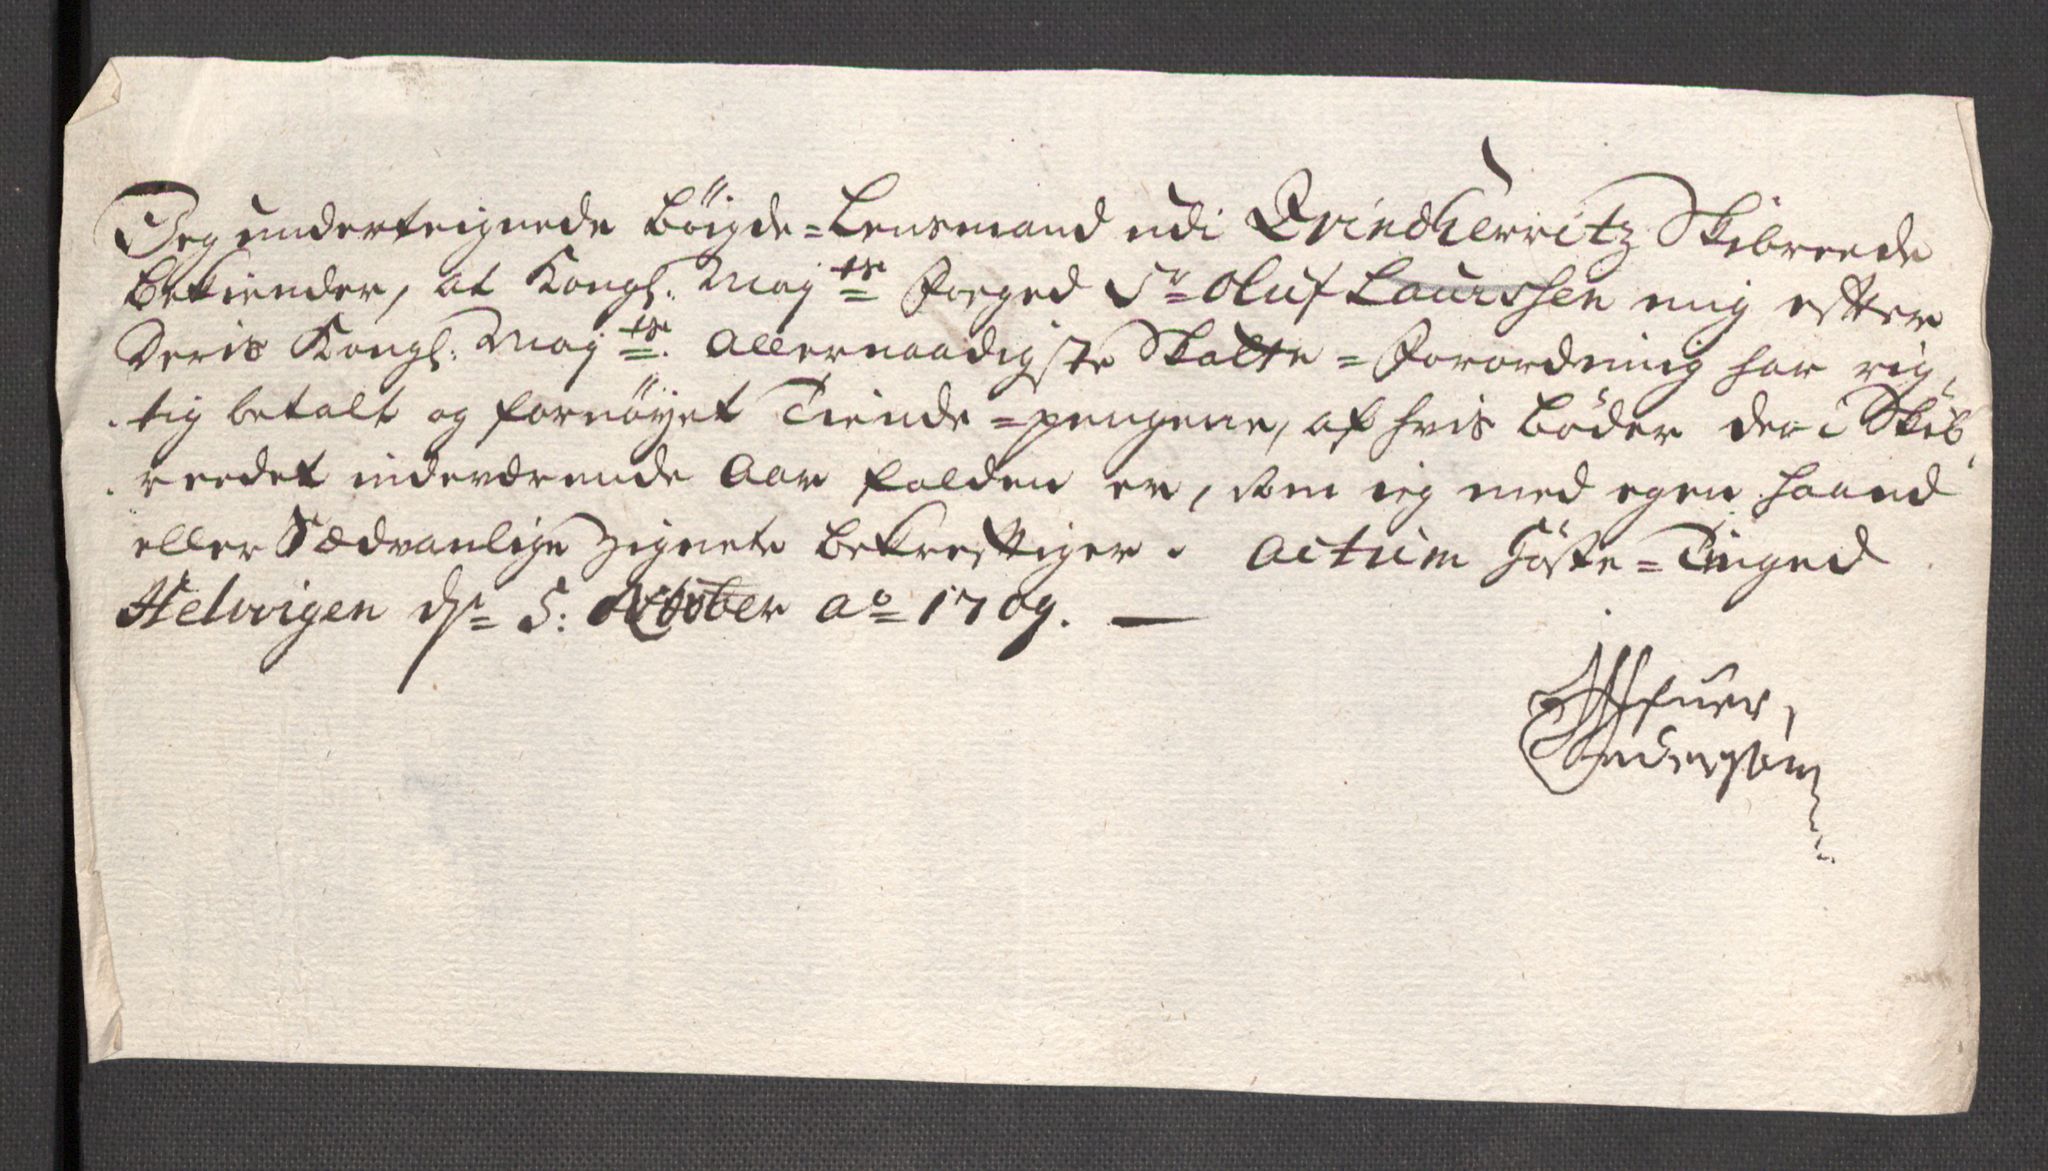 Jeg underteignede Böigde=Lensmand udi Qvindherritz Skibreede
bekiender, at Kongl: May:ts Foeged Sr Oluf Laurssen mig efter
Deris Kongl: May:ts Allernaadigste Skatte=Forordning har rig,
tig betalt og fornöyet Tiende=pengene, af hvis Böder der i Skib,
reedet indeværende Aar falden er, som ieg med egen haand
eller Sædvanlige Zignete bekreftiger. Actum Höste=Tinged
Helvigen dn 5: October Ao 1709.
Andersøn